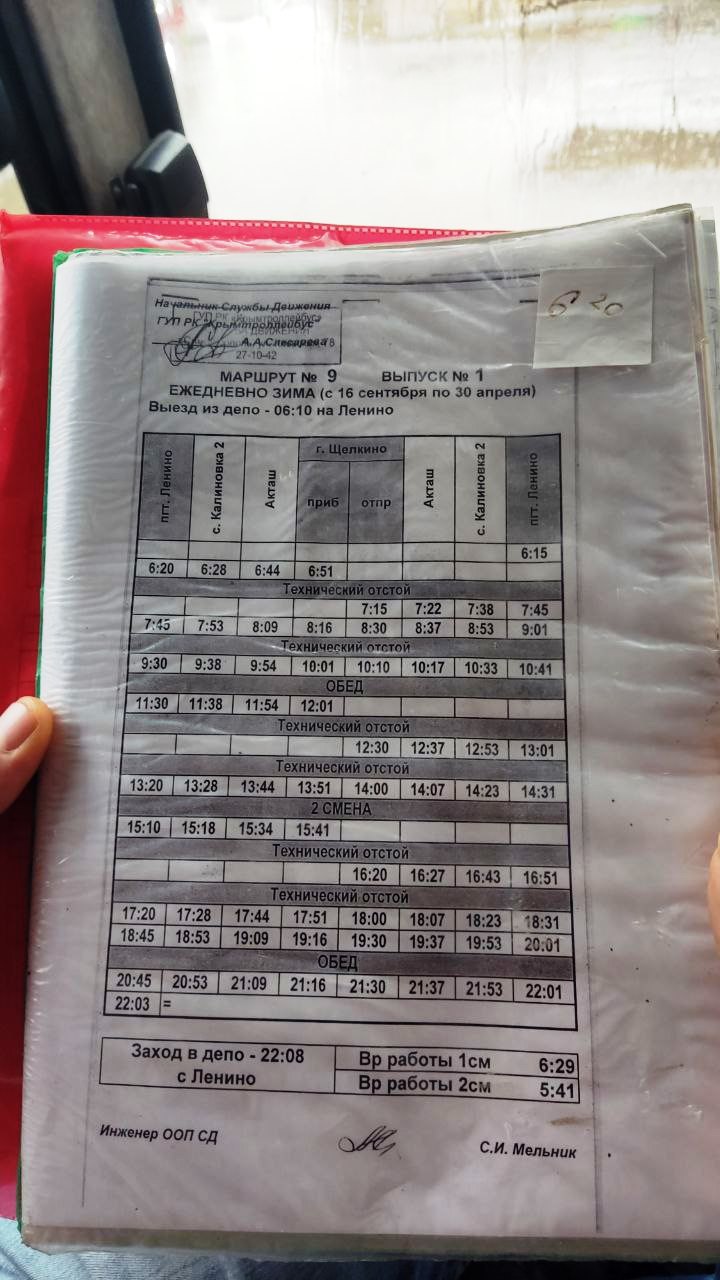 Начальник Службы Движения
ГУП РК "Крымтроллейбус"
А.А.Слесарева
27-10-42
6 20
МАРШРУТ № 9 ВЫПУСК № 1
ЕЖЕДНЕВНО ЗИМА (с 16 сентября по 30 апреля)
Выезд из депо - 06:10 на Ленино
пгт. Ленино с. Калиновка 2 Акташ г. Щелкино Акташ с. Калиновка 2 пгт. Ленино
приб отпр
6:15
6:20 6:28 6:44 6:51
Технический отстой
7:15 7:22 7:38 7:45
7:45 7:53 8:09 8:16 8:30 8:37 8:53 9:01
Технический отстой
9:30 9:38 9:54 10:01 10:10 10:17 10:33 10:41
ОБЕД
11:30 11:38 11:54 12:01
Технический отстой
12:30 12:37 12:53 13:01
Технический отстой
13:20 13:28 13:44 13:51 14:00 14:07 14:23 14:31
2 СМЕНА
15:10 15:18 15:34 15:41
Технический отстой
16:20 16:27 16:43 16:51
Технический отстой
17:20 17:28 17:44 17:51 18:00 18:07 18:23 18:31
18:45 18:53 19:09 19:16 19:30 19:37 19:53 20:01
ОБЕД
20:45 20:53 21:09 21:16 21:30 21:37 21:53 22:01
22:03 =
Заход в депо - 22:08
с Ленино
Вр работы 1см 6:29
Вр работы 2см 5:41
Инженер ООП СД С.И. Мельник